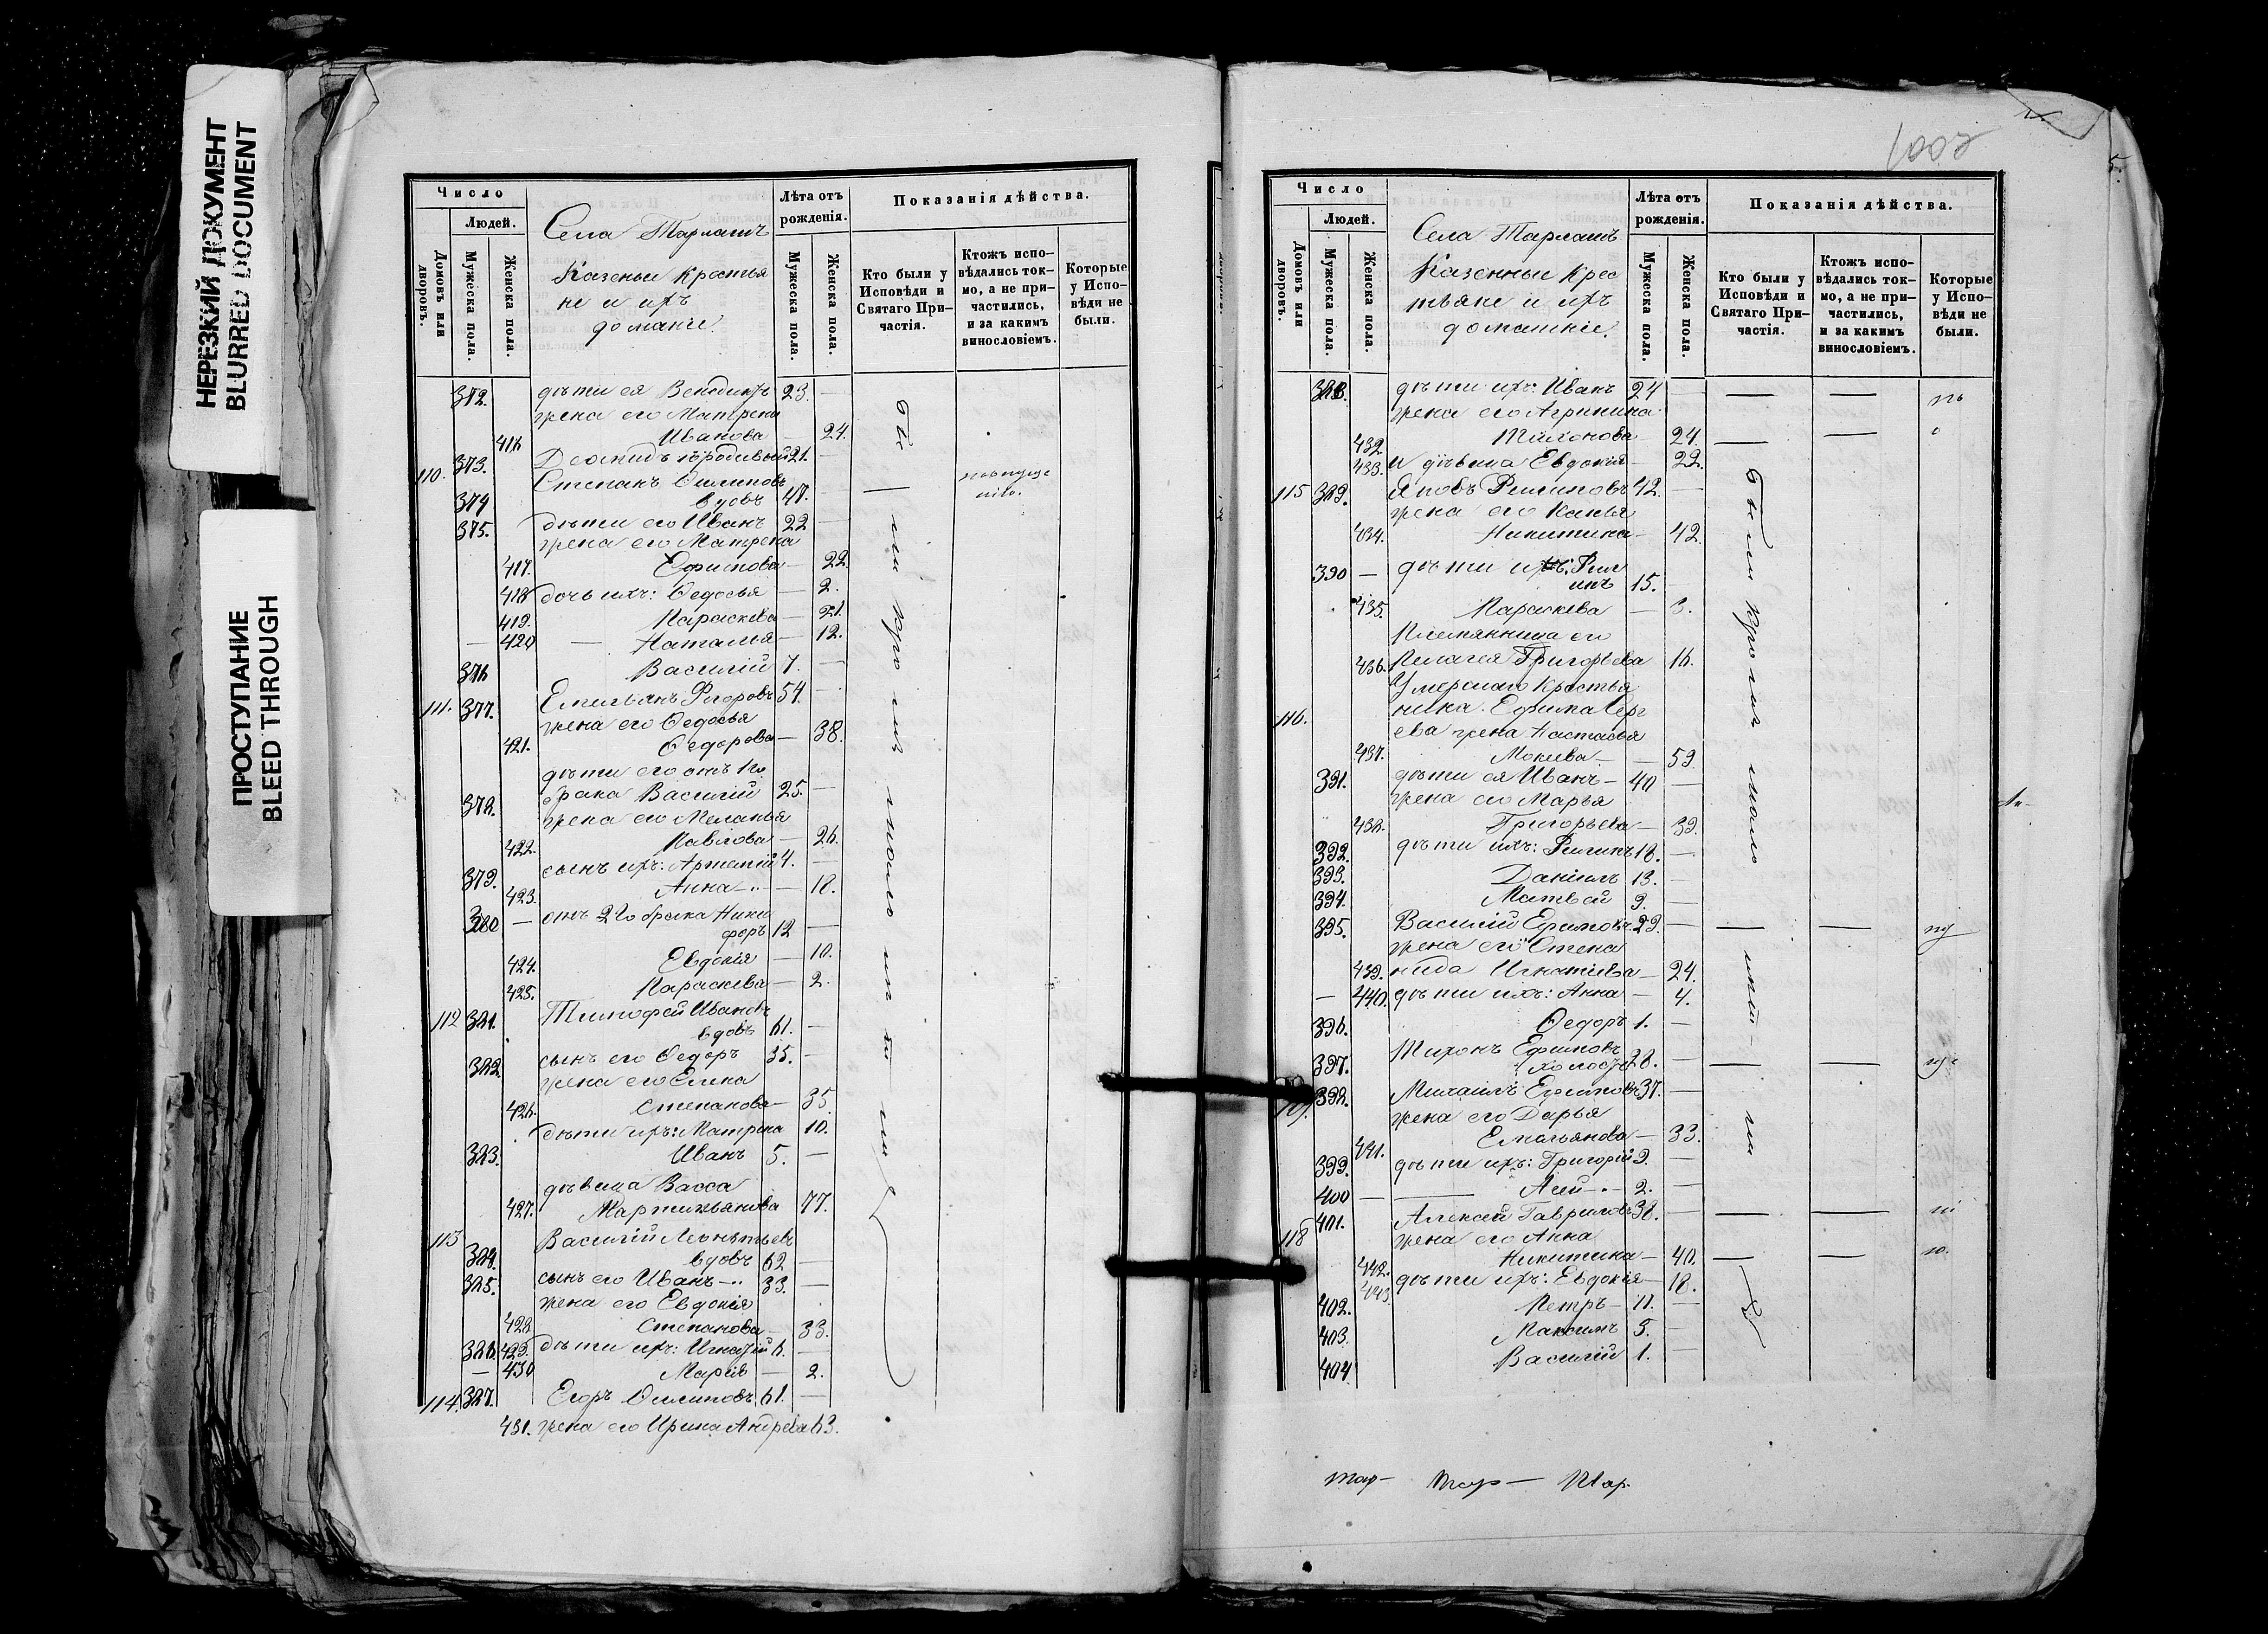 НЕРЕЗКИЙ ДОКУМЕНТ
BLURRED DOCUMENT
ПРОСТУПАНИЕ
BLEED THROUGH
Число
Людей.
Домовъ или дворовъ.
Мужеска пола.
Женска пола.
Села Тарлашъ
Казеныи крестья
не и ихъ
домашніе.
Лѣта отъ рожденія.
Мужеска пола.
Женска пола.
Показанія дѣйства.
Кто были у Исповѣди и Святаго Причастія.
Ктожъ исповѣдались токмо, а не причастились, и за какимъ винословіемъ.
Которые у Исповѣди не были.
372. дѣти ея Венедиктъ 23. —
жена его Матрена
416 Иванова — 24.
373. 21. —
110. Степанъ Филиповъ
374 вдовъ 47. —
375. дѣти его Иванъ 22 —
жена его Матрена
417. Ефимова — 22.
418 дочь ихъ: Федосья — 2.
419. Параскева — 21.
— 420 — Наталья — 12.
376 Василій 7. —
111. 377. Емельянъ Егоровъ 54. —
жена его Федосья
421. Федорова — 38.
дѣти его отъ 1го
378. брака Василій 25. —
жена его Меланья
422. Павлова — 26.
379. сынъ ихъ: Артемій 4. —
423. Анна — 18.
380 — отъ 2го брака Ники
форъ 12 —
424. Евдокія — 10.
425. Параскева — 2.
112 381. Тимофей Ивановъ
вдовъ 61. —
382. сынъ его Федоръ 35. —
жена его Елена
426. Степанова — 35.
дѣти ихъ: Матрена 10.
383. Иванъ 5. —
дѣвица Васса
427. Мартимьянова 77.
113 Василій Леонтьевъ
384. вдовъ 62 —
385. сынъ его Иванъ 33. —
жена его Евдокія
428. Степанова — 33.
386. 429. дѣти ихъ: Игнатій 6. —
— 430 Марія — 2.
114. 387. Егоръ Филиповъ 61. —
431. жена его Ирина Андрева 63.
1002
Число
Людей.
Домовъ или дворовъ.
Мужеска пола.
Женска пола.
Села Тарлашъ
Казенныи крес
тьяне и ихъ
домашніе.
Лѣта отъ рожденія.
Мужеска пола.
Женска пола.
Показанія дѣйства.
Кто были у Исповѣди и Святаго Причастія.
Ктожъ исповѣдались токмо, а не причастились, и за какимъ винословіемъ.
Которые у Исповѣди не были.
388. дѣти ихъ: Иванъ 24 —
жена его Агрипина
432. Тихонова 24.
433. и дѣвица Евдокія — 22.
115 389. Яковъ Филиповъ 42. —
жена его
434. Никитина — 42.
390 — дѣти ихъ: Фил
ипъ 15. —
435. Параскева — 3.
Племянница его
436. Пелагея Григорьева 16.
Умерспаго крестья
116. нина Ефима Серг
ева жена Настасья
437. Мокиева — 59.
391. дѣти ея Иванъ — 40 —
жена его Марья
438. Григорьева — 39.
392. дѣти ихъ: Филипъ 18. —
393. Даніилъ 13. —
394. Матвѣй 9. —
395. Василій Ефимовъ 29. —
жена его Степа
439. нида Игнатіева — 24.
— 440. дѣти ихъ: Анна — 4.
396. Федоръ 1. —
Тихонъ Ефимовъ
397. холостъ 28. —
398. Михаилъ Ефимовъ 37. —
жена его Дарья
441. Емельянова — 33.
399. дѣти ихъ: Григорій 9. —
400 — 2. —
401. Алексѣй Гавриловъ 38. —
118 жена его Анна
442. Никитина — 40.
443. дѣти ихъ: Евдокія — 18.
402. Петръ — 11. —
403. Максимъ 5. —
404 Василій 1. —